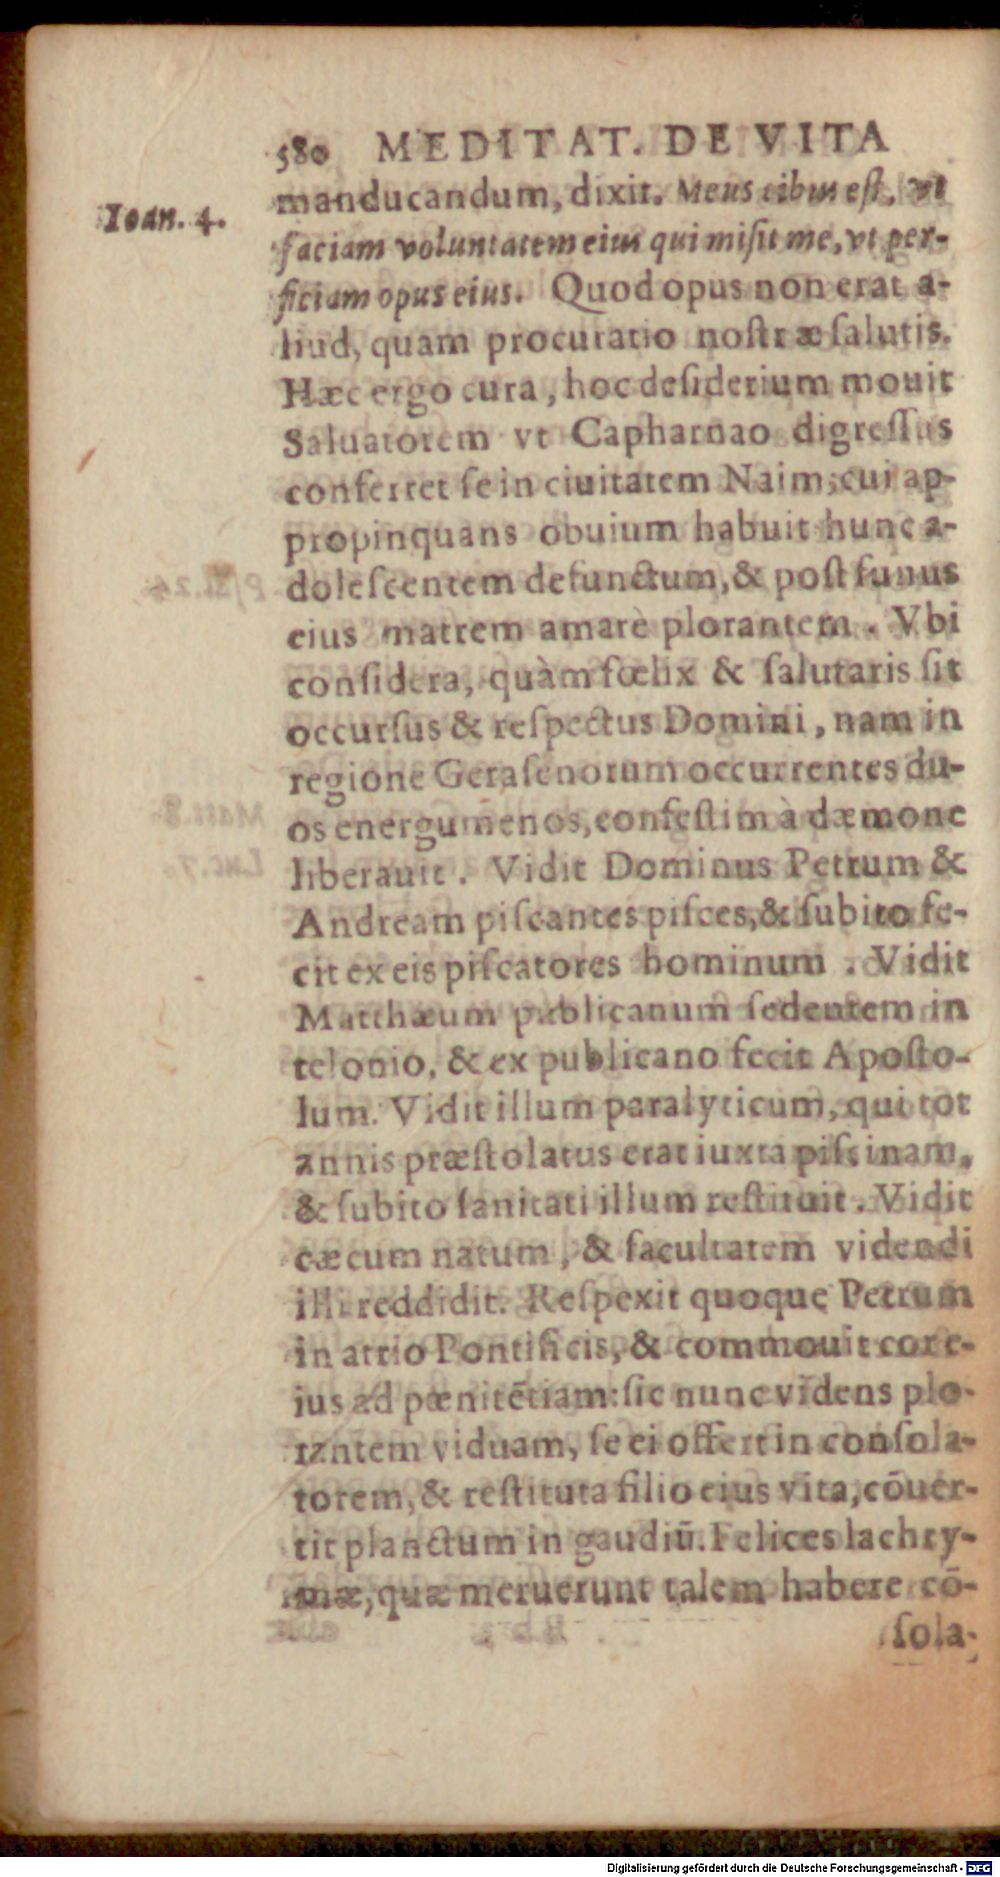 580 MEDITAT. DE VITA
manducandum, dixit. Meus cibus est, vt
Ioan. 4.
faciam voluntatem eius qui misit me, vt per-
ficiam opus eius. Quod opus non erat a-
liud, quam procuratio nostræ salutis.
Hæc ergo cura, hoc desiderium mouit
Saluatorem vt Capharnao digressus
conferret se in ciuitatem Naim; cui ap-
propinquans obuium habuit hunc a-
dolescentem defunctum, & post funus
eius matrem amarè plorantem. Vbi
considera, quàm fœlix & salutaris sit
occursus & respectus Domini, nam in
regione Gerasenorum occurrentes du-
os energumenos, confestim à dæmone
liberauit. Vidit Dominus Petrum &
Andream piscantes pisces, & subito fe-
cit ex eis piscatores hominum. Vidit
Matthæum publicanum sedentem in
telonio, & ex publicano fecit Aposto-
lum. Vidit illum paralyticum, qui tot
annis præstolatus erat iuxta piscinam,
& subito sanitati illum restituit. Vidit
cæcum natum, & facultatem videndi
illi reddidit. Respexit quoque Petrum
in atrio Pontificis, & commouit cor e-
ius ad pænitētiam: sic nunc videns plo-
rantem viduam, se ei offert in consola-
torem, & restituta filio eius vita, cōuer-
tit planctum in gaudiū. Felices lachry-
mæ, quæ meruerunt talem habere cō-
sola-
Digitalisierung gefördert durch die Deutsche Forschungsgemeinschaft - DFG